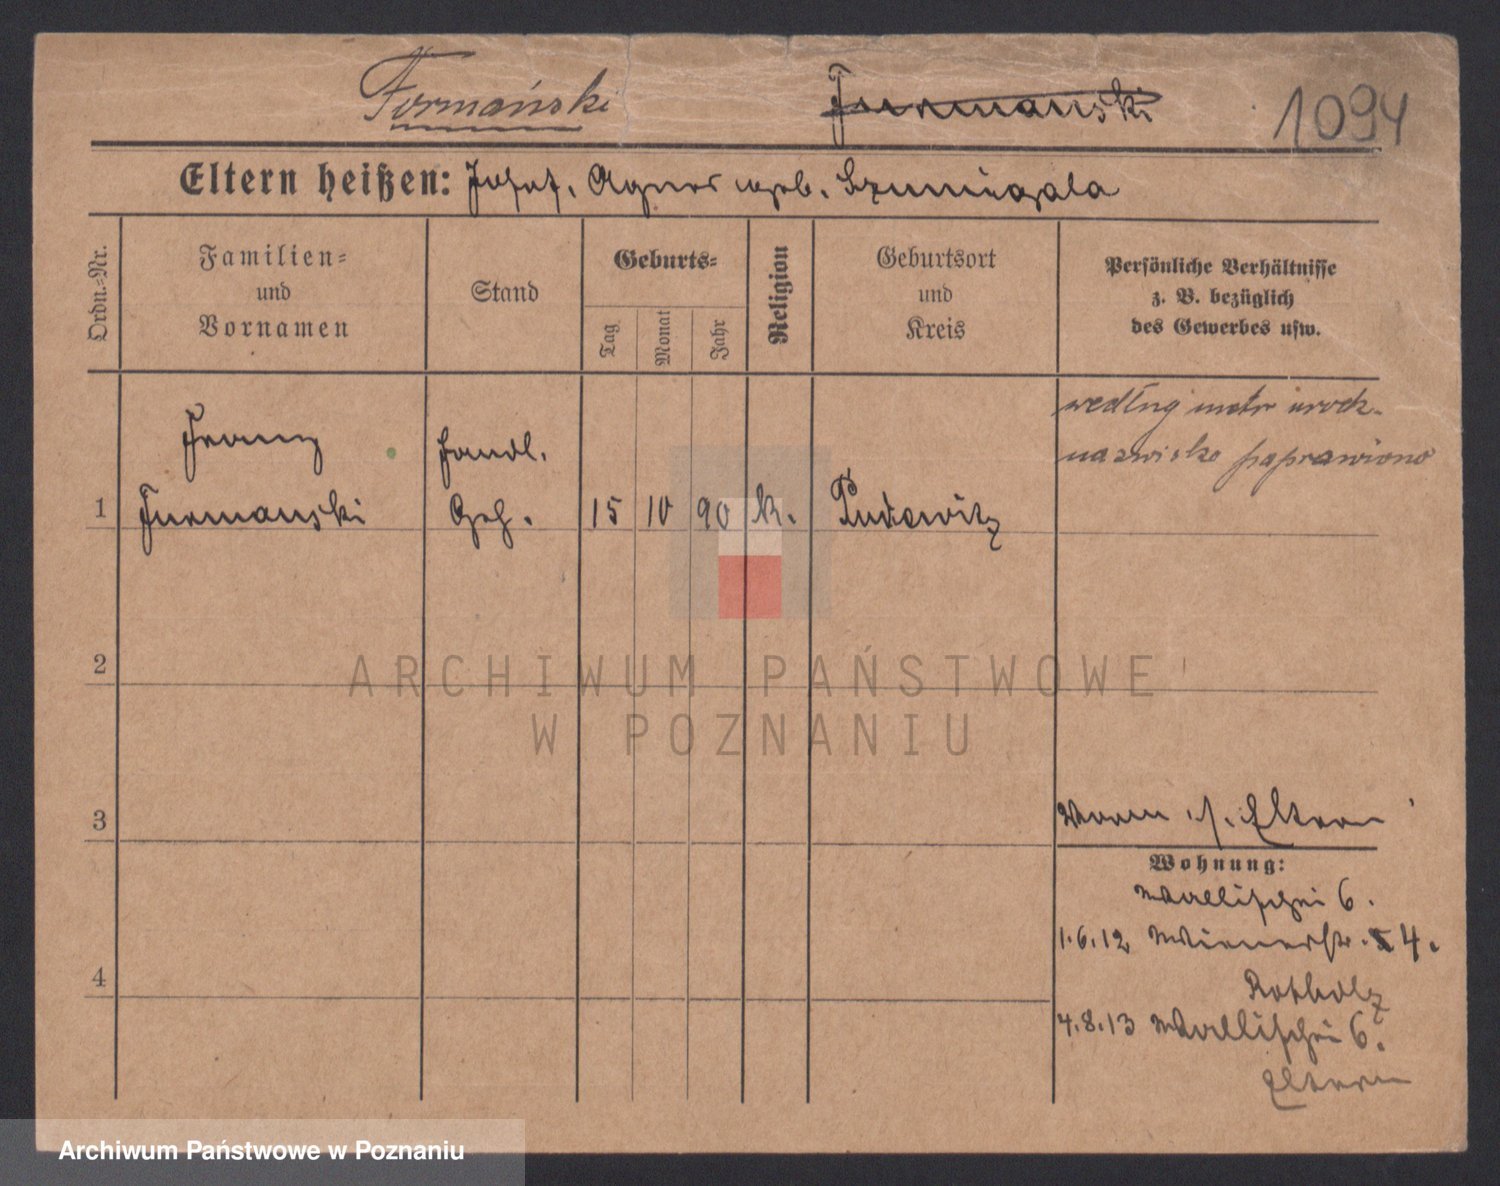 Formański Furmanski 1094
Eltern heißen: Josef, Agnes geb. Szumigala
Ordn.-Nr.
Familien-
und
Vornamen
Stand
Geburts-
Tag
Monat
Jahr
Religion
Geburtsort
und
Kreis
Persönliche Verhältnisse
z. B. bezüglich
des Gewerbes usw.
według metr urodz.
nazwisko poprawiono
Franz Handl.
1 Furmanski Geh. 15 10 90 k. Pudewitz
2
ARCHIWUM PAŃSTWOWE
W POZNANIU
3
Eltern
Wohnung:
Wallischei 6.
1.6.12 Wienerstr. 4.
Rotholz
4
4.8.13 Wallischei 6.
Eltern
Archiwum Państwowe w Poznaniu